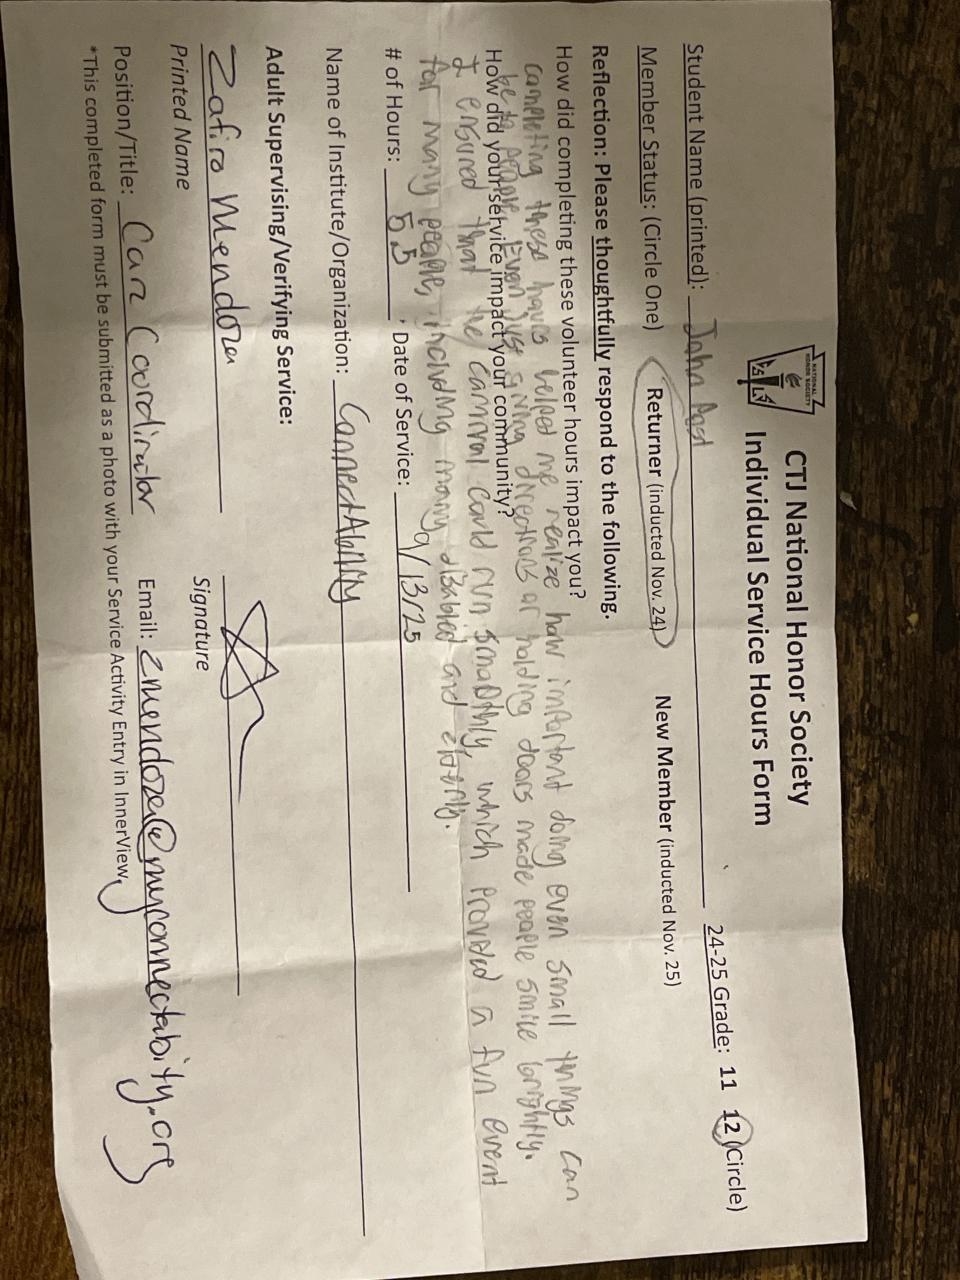 CTJ National Honor Society
Individual Service Hours Form
NATIONAL
HONOR SOCIETY
Student Name (printted): John Post 24-25 Grade: 11 12 (Circle)
Member Status: (Circle One) Returner (inducted Nov. 24) New Member (inducted Nov. 25)
Reflection: Please thoughtfully respond to the following.
How did completing these volunteer hours impact you?
completing these hours helped me realize how important doing even small things can
be to people. Even just giving directions or holding doors made people smile brightly.
How did your service impact your community?
I ensured that the carnival could run smoothly, which provided a fun event
for many people, including many disabled and elderly.
# of Hours: 5.5, Date of Service: 9/13/25
Name of Institute/Organization: ConnectAbility
Adult Supervising/Verifying Service:
Zafiro Mendoza
Printed Name Signature
Position/Title: Care Coordinator Email: zmendoza@myconnectability.org
*This completed form must be submitted as a photo with your Service Activity Entry in InnerView.